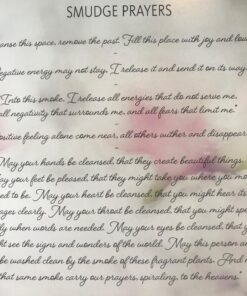 SMUDGE PRAYERS
anse this space, remove the past. Fill this place with joy and love
-
egative energy may not stay, I release it and send it on its way.
-
"Into this smoke, I release all energies that do not serve me,
all negativity that surrounds me, and all fears that limit me."
-
ositive feeling alone come near, all others wither and disappear
-
"May your hands be cleansed, that they create beautiful things.
ay your feet be pleased, that they might take you where you mo
ed to be. May your heart be cleansed, that you might hear its
ages clearly. May your throat be cleansed, that you might spe
ly when words are needed. May your eyes be cleansed, that y
ght see the signs and wonders of the world. May this person a
be washed clean by the smoke of these fragrant plants. And m
that same smoke carry our prayers, spiraling, to the heavens."